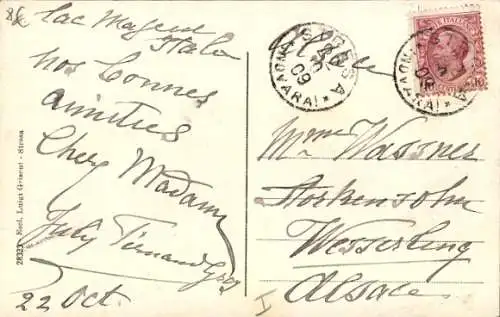 86
Lac Majeur
Italie
nos bonnes
amitiés
Chère Madame
July Fernand
22 Oct.
28321 Ecel. Luigi Grisoni - Stresa
STRESA
09
POSTE ITALIANE
Mme Wassner
Storkensohn
Wesserling
Alsace
I